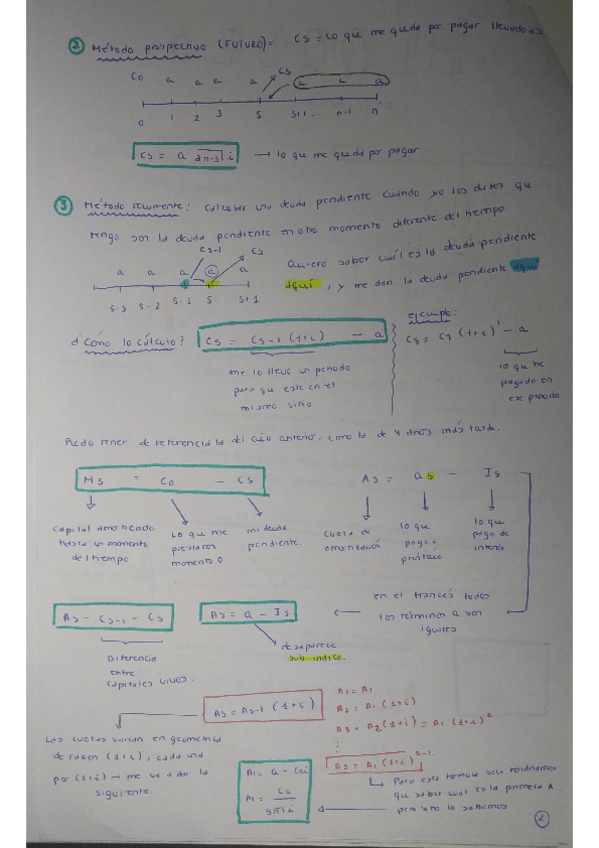 ② Método prospectivo (FUTURO) = Cs = Lo que me queda por pagar
Co a a a a Cs a a a
0 1 2 3 s s+1 ... n-1 n
Cs = a a n-s i → lo que me queda por pagar
③ Método recurrente: calcular una deuda pendiente cuando ya los datos que
tengo son la deuda pendiente en otro momento diferente del tiempo
Cs-1 Cs
a a a a a
s-3 s-2 s-1 s s+1
Quiero saber cuál es la deuda pendiente
aquí, y me dan la deuda pendiente aquí
¿Cómo lo cálculo? Cs = Cs-1 (1+i) - a
me lo llevo un periodo
para que este en el
mismo sitio
ejemplo:
C8 = C7 (1+i)¹ - a
lo que he
pagado en
ese periodo
Puedo tener de referencia la del año anterior, como la de 4 años más tarde.
Ms = Co - Cs
Capital amortizado
hasta un momento
del tiempo
Lo que me
prestaron
momento 0
mi deuda
pendiente.
As = as - Is
cuota de
amortización
lo que
pago
lo que
pago de
interés
en el francés todos
los términos a son
iguales
As = Cs-1 - Cs
Diferencia
entre
capitales vivos.
As = a - Is
desaparece
sub índice.
As = As-1 (1+i)
Las cuotas varían en geométrica
de razón (1+i), cada una
por (1+i) → me va a dar la
siguiente.
A1 = A1
A2 = A1 (1+i)
A3 = A2 (1+i) = A1 (1+i)²
⋮
As = A1 (1+i)^s-1
Para esta fórmula solo tendríamos
que saber cuál es la primera A
pero si no lo sabemos
A1 = a - Co i
A1 = Co / S n i
2